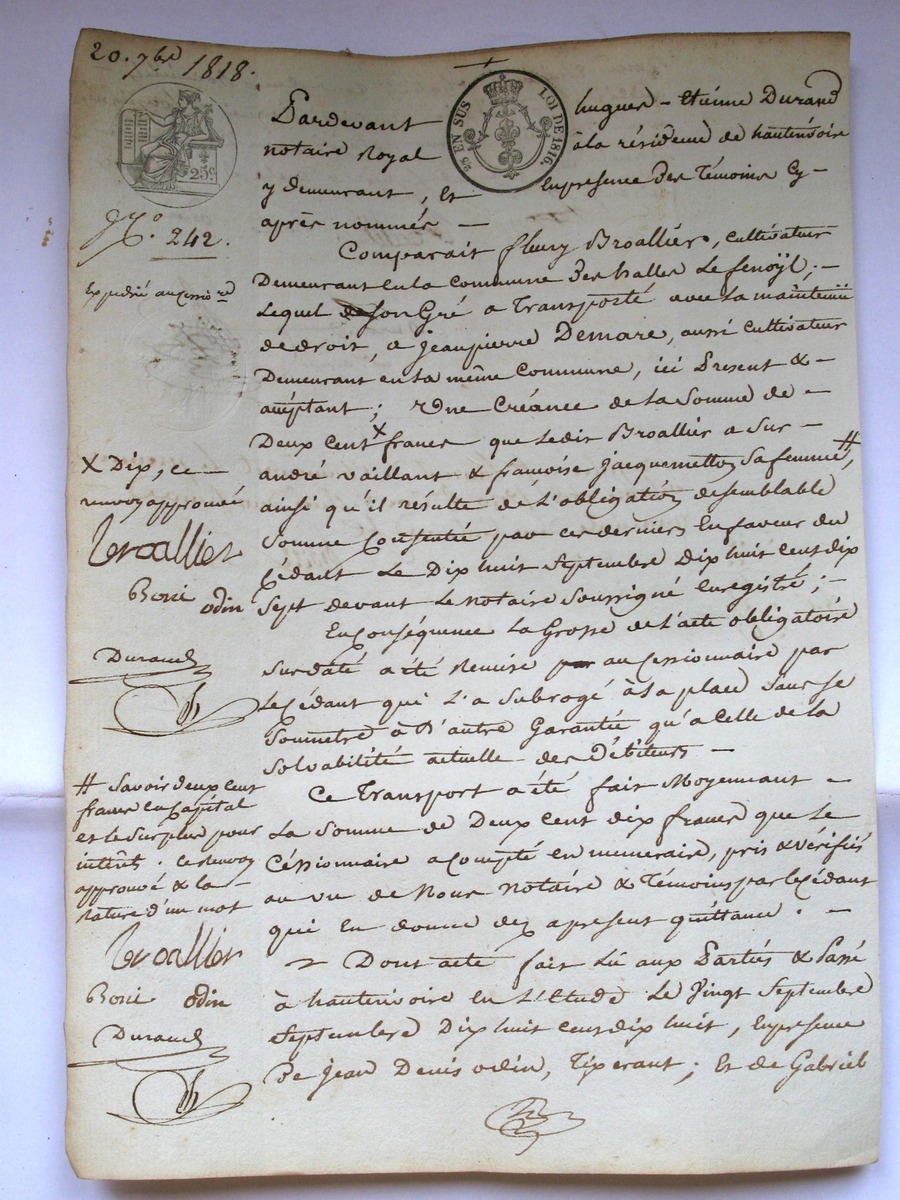 20. 7bre 1818.
25 EN SUS LOI DE 1816.
25c.
Pardevant hugues-etiénne Durand
notaire Royal à la résidence de hauterivoire
y demeurant, et Enpresence Des Témoins Cy-
après nommés —
N.° 242.
Expédié au Cessionre
Comparait fleury Broallier, cultivateur
Demeurant En la Commune Des halles Le fenoÿl; —
Lequel de son Gré a Transporté avec La maintenüe
de droit, a Jeanpierre Demare, aussi Cultivateur
Demeurant en la même Commune, ici Present & —
acceptant; Une Créance de la Somme de —
Deux Cent X francs que ledit Broallier a Sur —
andré vaillant & françoise Jacquemetton Sa femme #,
ainsi qu'il résulte de L'obligation desemblable
Somme Consentie par ces derniers En faveur du
Cédant Le Dix huit Septembre Dix huit Cent dix
Sept devant Le notaire Soussigné Enregistré; —
X Dix, ce —
renvoy approuvé
broallier
Boni odin
Durand
En Conséquence La Grosse de l'acte obligatoire
Surdaté a été Remise par au Cessionnaire par
Le Cédant qui L'a Subrogé à la place Sans Se
Soumetre à D'autre Garantie qu'a Celle de la
Solvabilité actuelle des Débiteurs —
# Savoir deux Cent
francs en Capital
et le Surplus pour
intérêt. Ce renvoy
approuvé & la —
rature d'un mot
broallier
Boni odin
Durand
Ce Transport a été fait Moyennant —
La Somme de Deux Cent dix francs que Le
Céssionnaire a Compté en numeraire, pris & vérifiés
au vu de Nous notaire & Témoins par le Cédant
qui En donne dez apresent quittance. —
Dont acte fait Lu aux Partiés & Passé
à hauterivoire en L'Etude Le Vingt Septembre
Septembre Dix huit Cent dix huit, Enpresence
De Jean Denis odin, Tixerant; Et de Gabriel